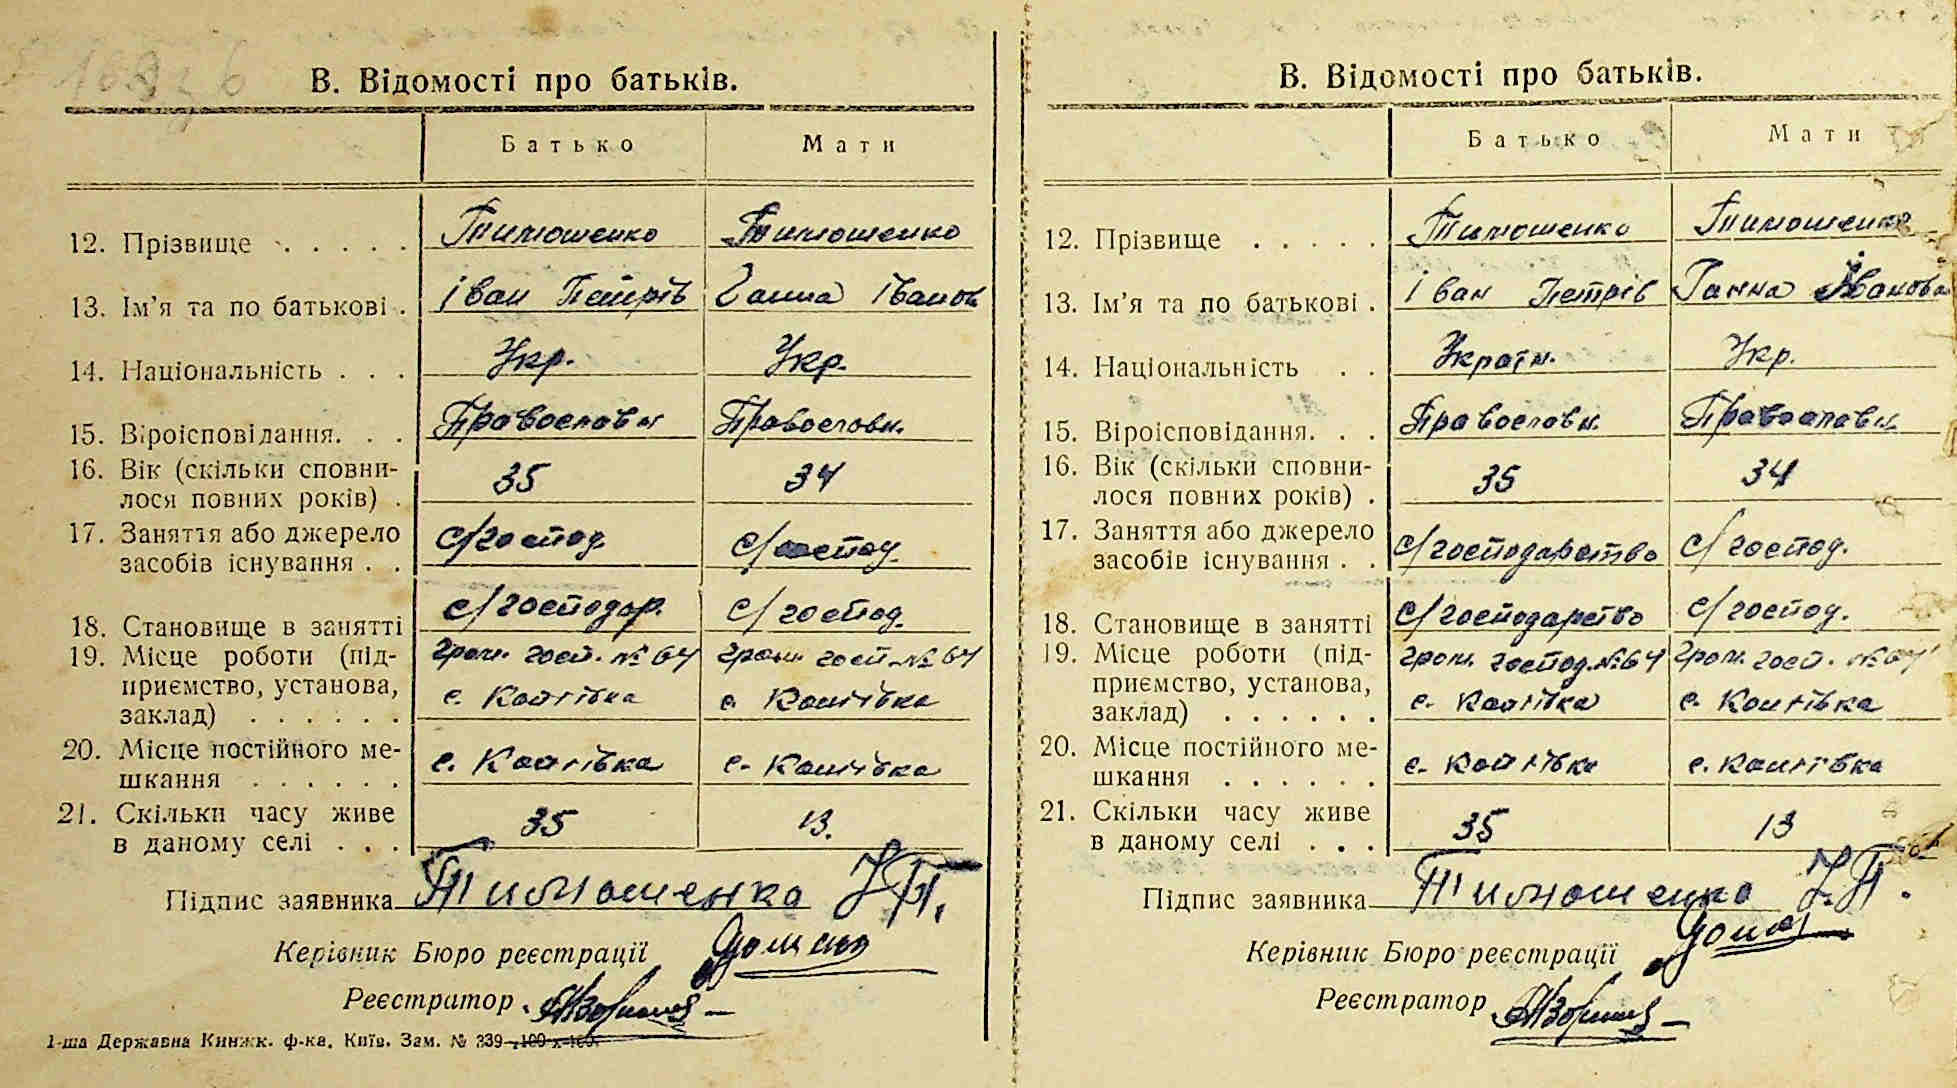 В. Відомості про батьків.
Батько Мати
12. Прізвище . . . . . Тимошенко Тимошенко
13. Ім'я та по батькові . Іван Петрів Ганна Іванов
14. Національність . . . Укр. Укр.
15. Віроісповідання. . . Православн Православн.
16. Вік (скільки сповни-
лося повних років) . 35 34
17. Заняття або джерело
засобів існування . . с/господ. с/господ.
18. Становище в занятті с/господар. с/господ.
19. Місце роботи (під- гром. госп. № 64 гром. госп. № 64
приємство, установа, с. с.
заклад) . . . . . .
20. Місце постійного ме-
шкання . . . . . . с. с.
21. Скільки часу живе
в даному селі . . . 35 13.
Підпис заявника Тимошенко І.П.
Керівник Бюро реєстрації
Реєстратор
1-ша Державна Книжк. ф-ка, Київ. Зам. № 339
В. Відомості про батьків.
Батько Мати
12. Прізвище . . . . . Тимошенко Тимошенко
13. Ім'я та по батькові . Іван Петрів Ганна Іванов
14. Національність . . Україн. Укр.
15. Віроісповідання. . . Православн. Православн.
16. Вік (скільки сповни-
лося повних років) . 35 34
17. Заняття або джерело
засобів існування . . с/господарство с/господ.
18. Становище в занятті с/господарство с/господ.
19. Місце роботи (під- гром. господ. № 64 гром. госп. № 64
приємство, установа, с. с.
заклад) . . . . . .
20. Місце постійного ме-
шкання . . . . . . с. с.
21. Скільки часу живе
в даному селі . . . 35 13
Підпис заявника Тимошенко І.П.
Керівник Бюро реєстрації
Реєстратор